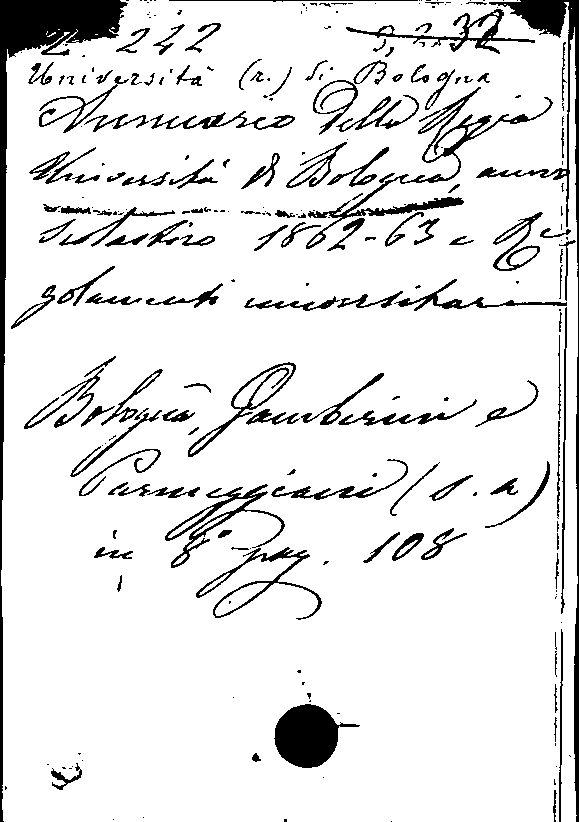 L 242 3,2.32
Università (r.) di Bologna
Annuario della Regia
Università di Bologna, anno
scolastico 1862-63 e Re-
golamenti universitari
Bologna, Gamberini e
Parmeggiani (s. a)
in 8° pag. 108